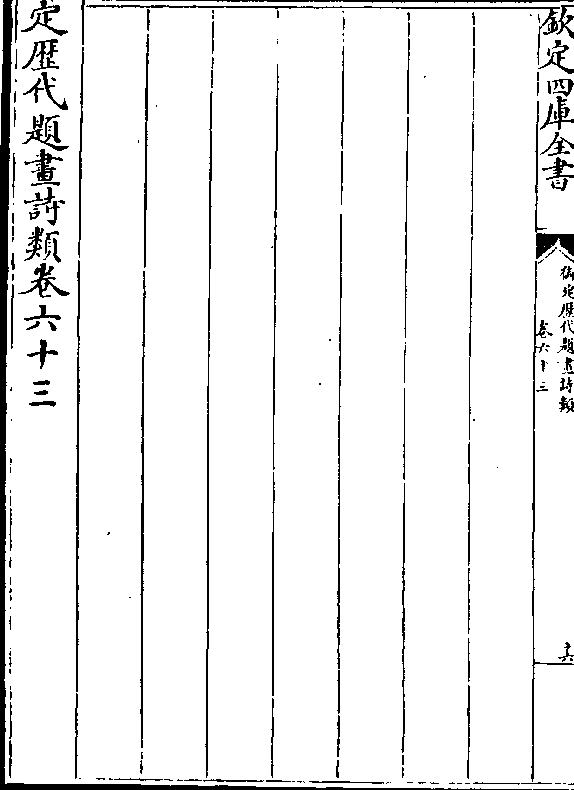 欽定四庫全書
御定歷代題畫詩類
卷六十三
十六
定歷代題畫詩類卷六十三